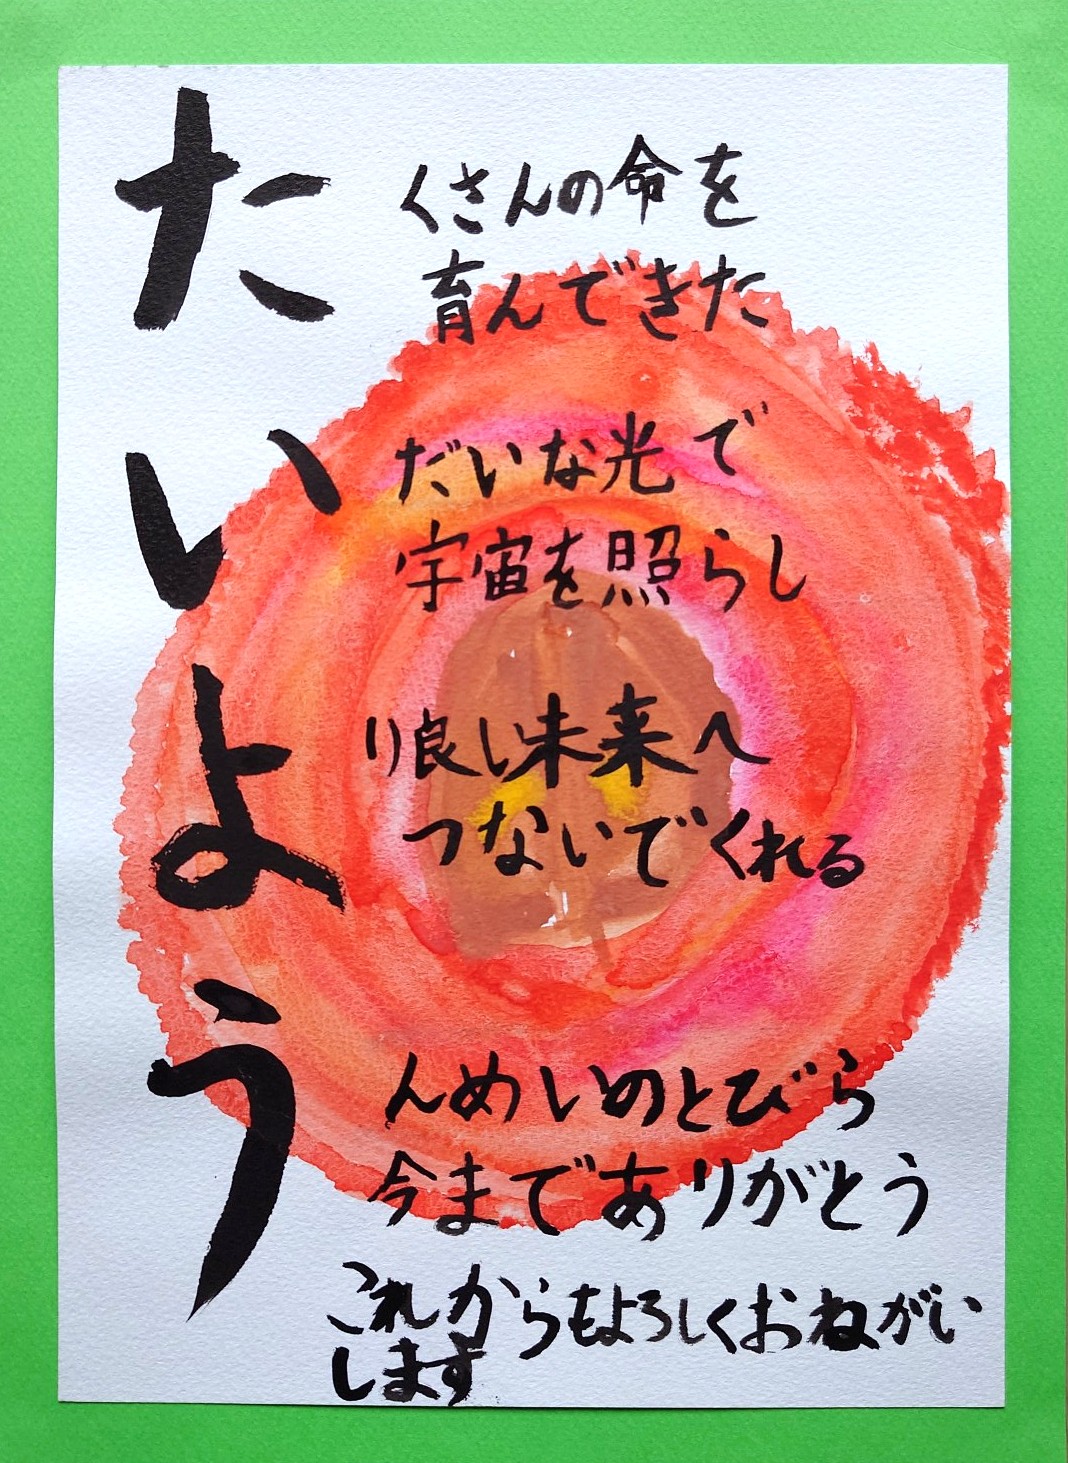 たいよう
くさんの命を
育んできた
だいな光で
宇宙を照らし
り良い未来へ
つないでくれる
んめいのとびら
今までありがとう
これからもよろしくおねがい
します